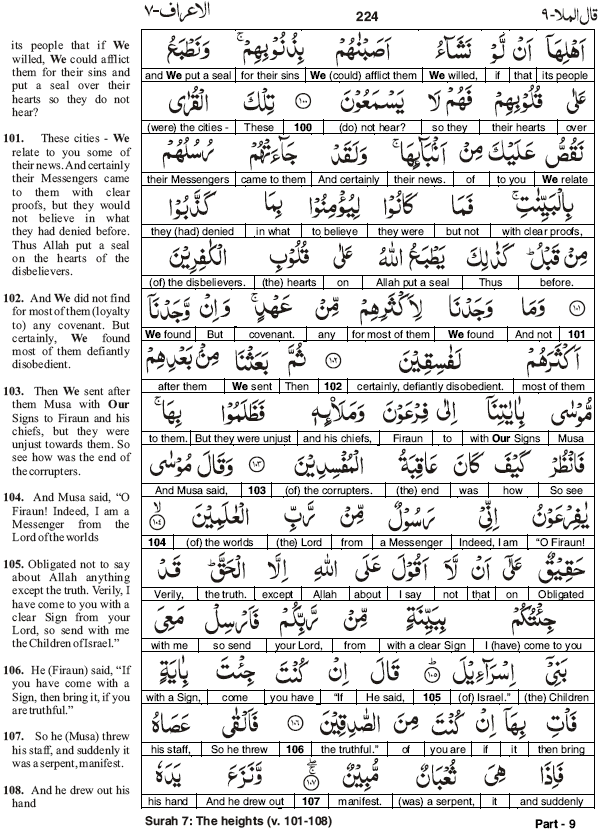 الاعراف-٧ 224 قال الملا-٩
its people that if We
willed, We could afflict
them for their sins and
put a seal over their
hearts so they do not
hear?
101. These cities - We
relate to you some of
their news. And certainly
their Messengers came
to them with clear
proofs, but they would
not believe in what
they had denied before.
Thus Allah put a seal
on the hearts of the
disbelievers.
102. And We did not find
for most of them (loyalty
to) any covenant. But
certainly, We found
most of them defiantly
disobedient.
103. Then We sent after
them Musa with Our
Signs to Firaun and his
chiefs, but they were
unjust towards them. So
see how was the end of
the corrupters.
104. And Musa said, “O
Firaun! Indeed, I am a
Messenger from the
Lord of the worlds
105. Obligated not to say
about Allah anything
except the truth. Verily, I
have come to you with a
clear Sign from your
Lord, so send with me
the Children of Israel.”
106. He (Firaun) said, “If
you have come with a
Sign, then bring it, if you
are truthful.”
107. So he (Musa) threw
his staff, and suddenly it
was a serpent, manifest.
108. And he drew out his
hand
اَهْلِهَاۤ اَنْ لَّوْ نَشَآءُ اَصَبْنٰهُمْ بِذُنُوْبِهِمْ ۚ وَنَطْبَعُ
and We put a seal for their sins We (could) afflict them We willed, if that its people
عَلٰى قُلُوْبِهِمْ فَهُمْ لَا يَسْمَعُوْنَ ﴿١٠٠﴾ تِلْكَ الْقُرٰى
(were) the cities - These 100 (do) not hear? so they their hearts over
نَقُصُّ عَلَيْكَ مِنْ اَنْۢبَآئِهَا ۚ وَلَقَدْ جَآءَتْهُمْ رُسُلُهُمْ
their Messengers came to them And certainly their news. of to you We relate
بِالْبَيِّنٰتِ ۚ فَمَا كَانُوْا لِيُؤْمِنُوْا بِمَا كَذَّبُوْا
they (had) denied in what to believe they were but not with clear proofs,
مِنْ قَبْلُ ؕ كَذٰلِكَ يَطْبَعُ اللّٰهُ عَلٰى قُلُوْبِ الْكٰفِرِيْنَ
(of) the disbelievers. (the) hearts on Allah put a seal Thus before.
﴿١٠١﴾ وَمَا وَجَدْنَا لِاَكْثَرِهِمْ مِّنْ عَهْدٍ ۚ وَاِنْ وَّجَدْنَاۤ
We found But covenant. any for most of them We found And not 101
اَكْثَرَهُمْ لَفٰسِقِيْنَ ﴿١٠٢﴾ ثُمَّ بَعَثْنَا مِنْۢ بَعْدِهِمْ
after them We sent Then 102 certainly, defiantly disobedient. most of them
مُّوْسٰى بِاٰيٰتِنَاۤ اِلٰى فِرْعَوْنَ وَمَلَا۟ئِهٖ فَظَلَمُوْا بِهَا ۚ
to them. But they were unjust and his chiefs, Firaun to with Our Signs Musa
فَانْظُرْ كَيْفَ كَانَ عَاقِبَةُ الْمُفْسِدِيْنَ ﴿١٠٣﴾ وَقَالَ مُوْسٰى
And Musa said, 103 (of) the corrupters. (the) end was how So see
يٰفِرْعَوْنُ اِنِّىْ رَسُوْلٌ مِّنْ رَّبِّ الْعٰلَمِيْنَ ﴿١٠٤﴾ۙ
104 (of) the worlds (the) Lord from a Messenger Indeed, I am “O Firaun!
حَقِيْقٌ عَلٰۤى اَنْ لَّاۤ اَقُوْلَ عَلَى اللّٰهِ اِلَّا الْحَقَّ ؕ قَدْ
Verily, the truth. except Allah about I say not that on Obligated
جِئْتُكُمْ بِبَيِّنَةٍ مِّنْ رَّبِّكُمْ فَاَرْسِلْ مَعِىَ
with me so send your Lord, from with a clear Sign I (have) come to you
بَنِىْۤ اِسْرَآءِيْلَ ﴿١٠٥﴾ؕ قَالَ اِنْ كُنْتَ جِئْتَ بِاٰيَةٍ
with a Sign, come you have “If He said, 105 (of) Israel.” (the) Children
فَاْتِ بِهَاۤ اِنْ كُنْتَ مِنَ الصّٰدِقِيْنَ ﴿١٠٦﴾ فَاَلْقٰى عَصَاهُ
his staff, So he threw 106 the truthful.” of you are if it then bring
فَاِذَا هِىَ ثُعْبَانٌ مُّبِيْنٌ ﴿١٠٧﴾ۚ وَّنَزَعَ يَدَهٗ
his hand And he drew out 107 manifest. (was) a serpent, it and suddenly
Surah 7: The heights (v. 101-108) Part - 9